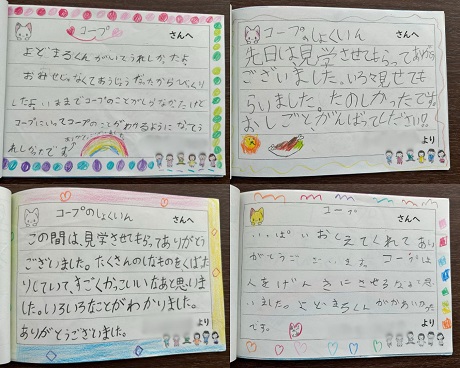 コープ さんへ
よどまるくんがいてうれしかったよ
おみせじゃなくて
びっくり
したよ いままでコープのことがしらなかったけど
コープにいってコープのことがわかるようになって
うれしかったです
コープのしょくいん さんへ
先日は見学させてもらってありがとう
ございました。いろいろ見せても
らいました。たのしかったです。
おしごと、がんばってください!!
より
コープのしょくいん さんへ
この間は、見学させてもらってありがとう
ございました。たくさんのしなものをくばっ
たりしていて、すごくかっこいいなあと思いま
した。いろいろなことがわかりました。
ありがとうございました。
より
コープ さんへ
いっぱいおしえてくれてあり
がとうございます コープは
人をげんきにさせるなと思
いました。よどまるくんがかわいかった
です。
より